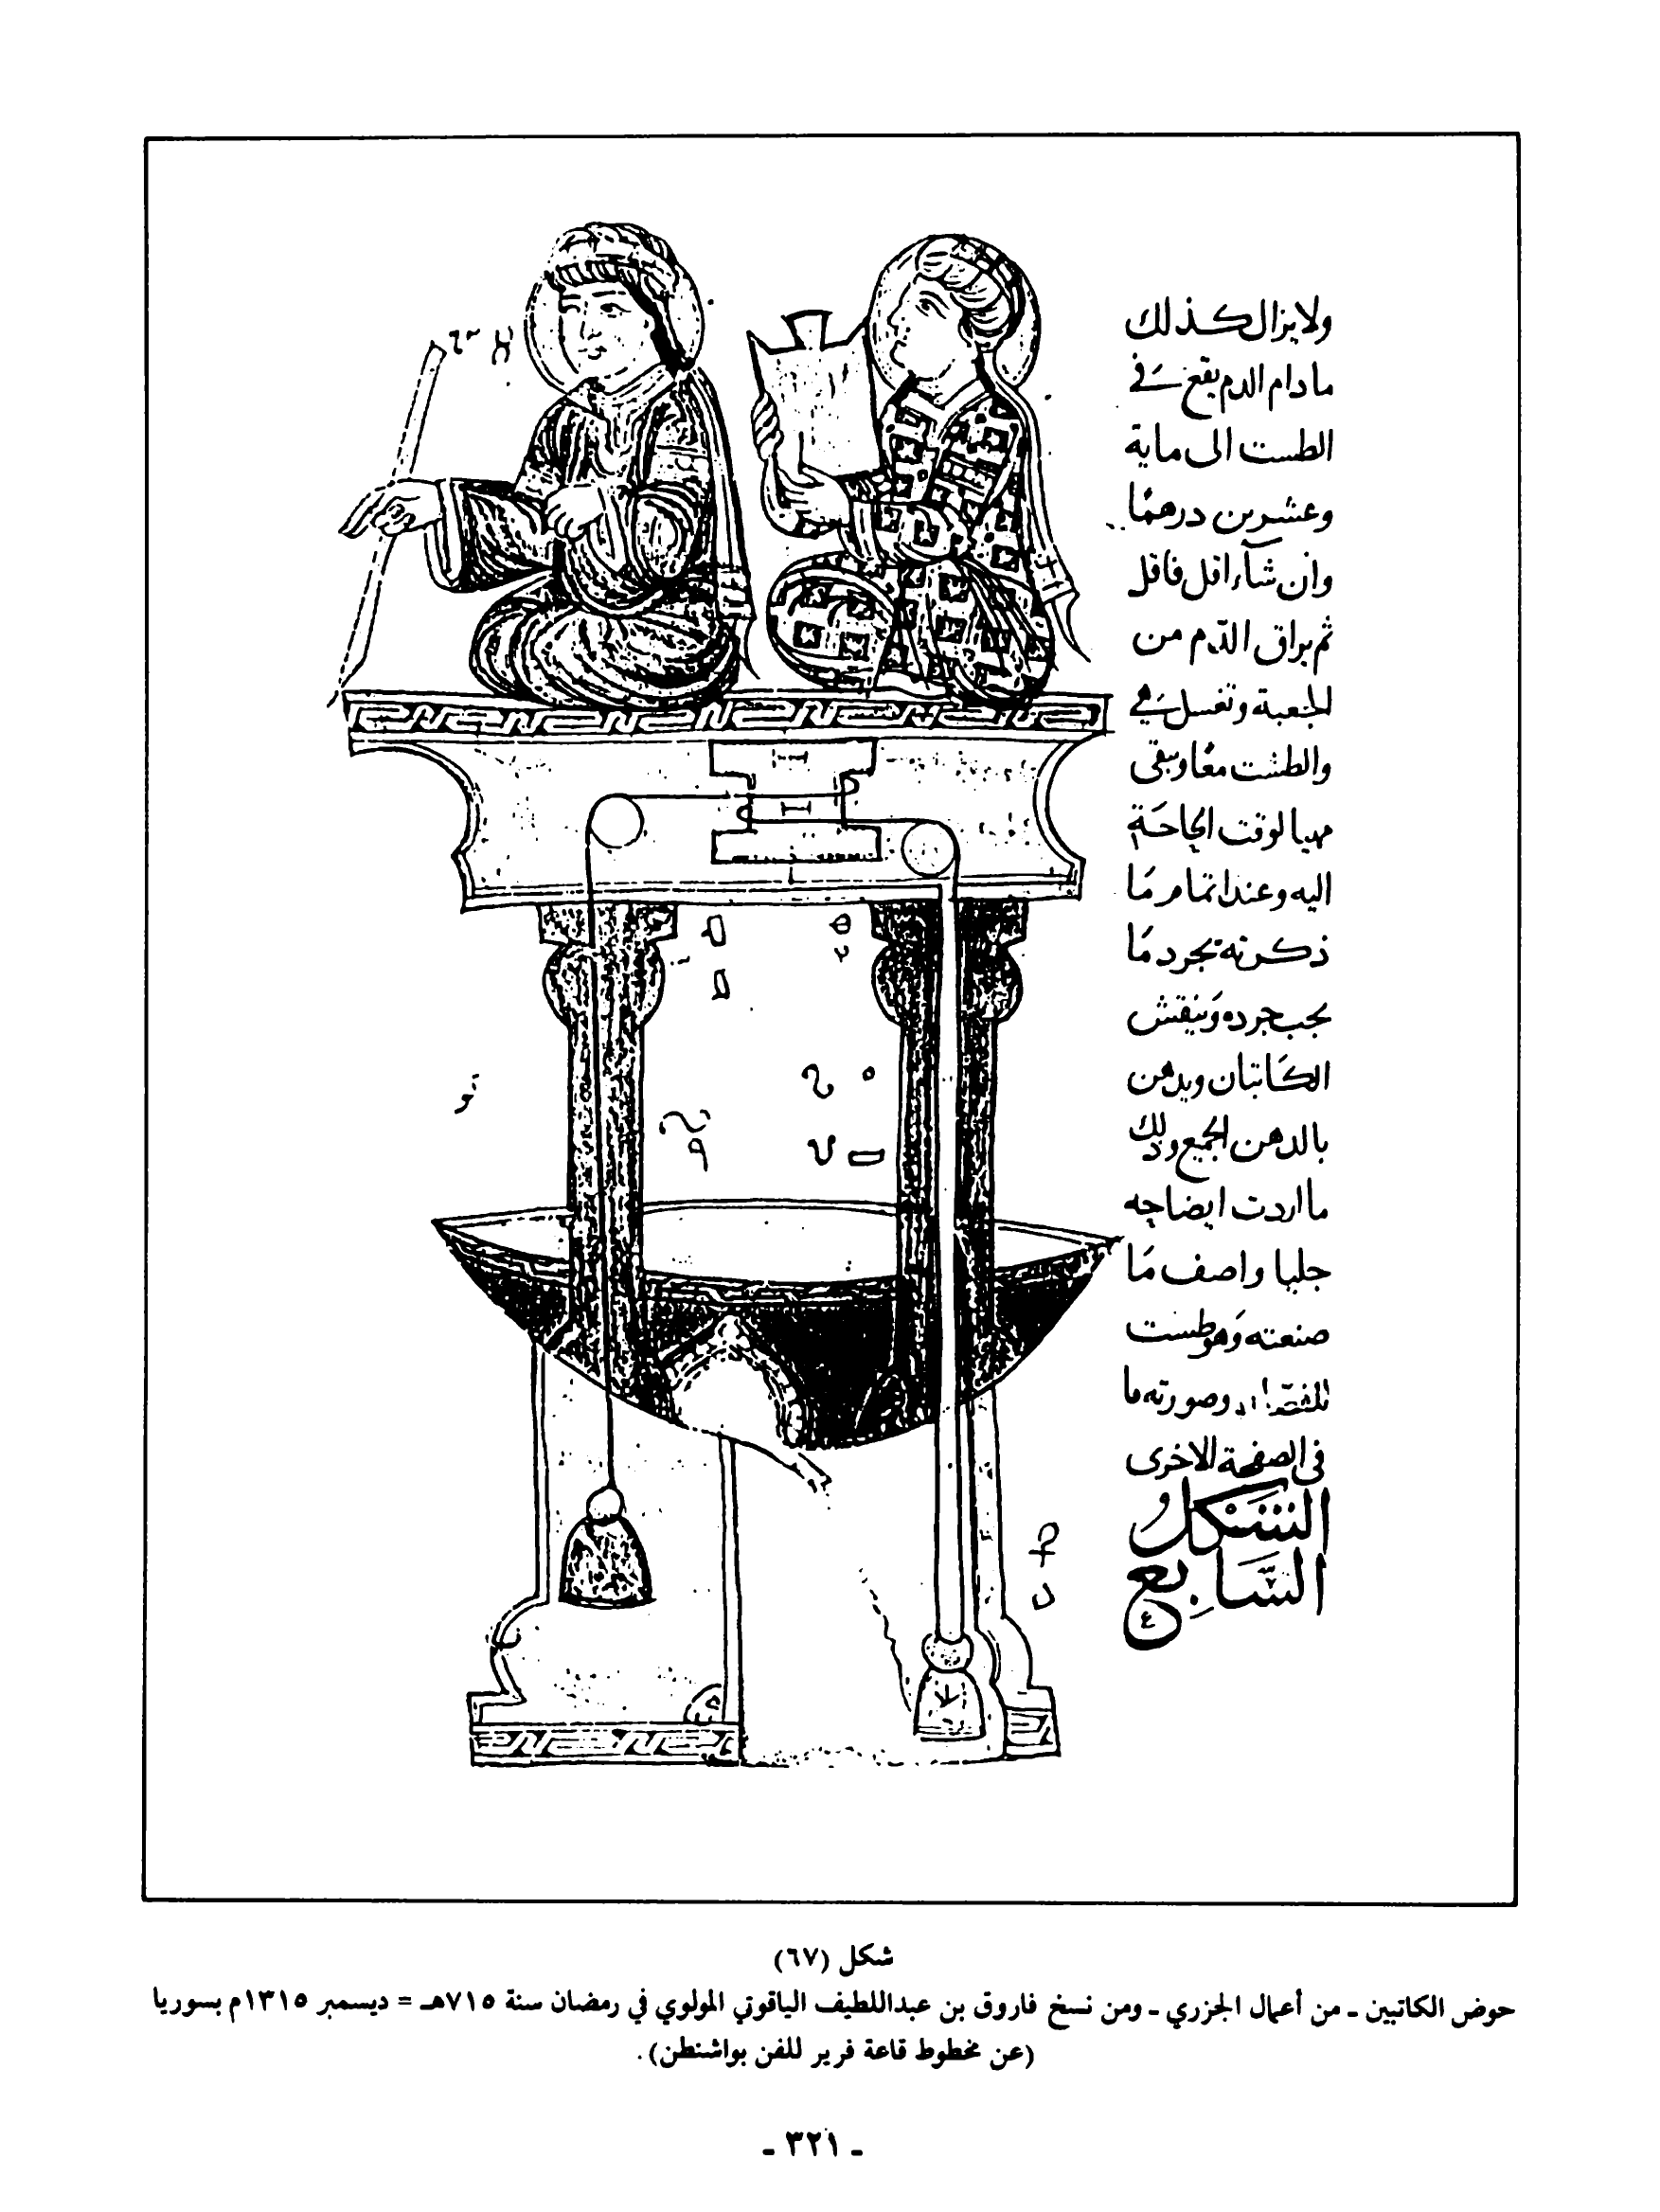 ولا يزال كذلك
ما دام الدم يقع في
الطست الى ماية
وعشرين درهما
وان شاء اقل فاقل
ثم يراق الدم من
الجعبة وتغسل هي
والطشت معا ويبقى
مهيا لوقت الحاجة
اليه وعند اتمام ما
ذكرته يجرد ما
يجب جرده وينقش
الكاتبان ويدهن
بالدهن الجميع وذلك
ما اردت ايضاحه
جليا واصف ما
صنعته وهو طست
للفصاد وصورته ما
في الصفحة الاخرى
الشكل
السابع
شكل (٦٧)
حوض الكاتبين ـ من أعمال الجزري ـ ومن نسخ فاروق بن عبداللطيف الياقوتي المولوي في رمضان سنة ٧١٥هـ = ديسمبر ١٣١٥م بسوريا
(عن مخطوط قاعة فرير للفن بواشنطن).
ـ ٣٢١ ـ